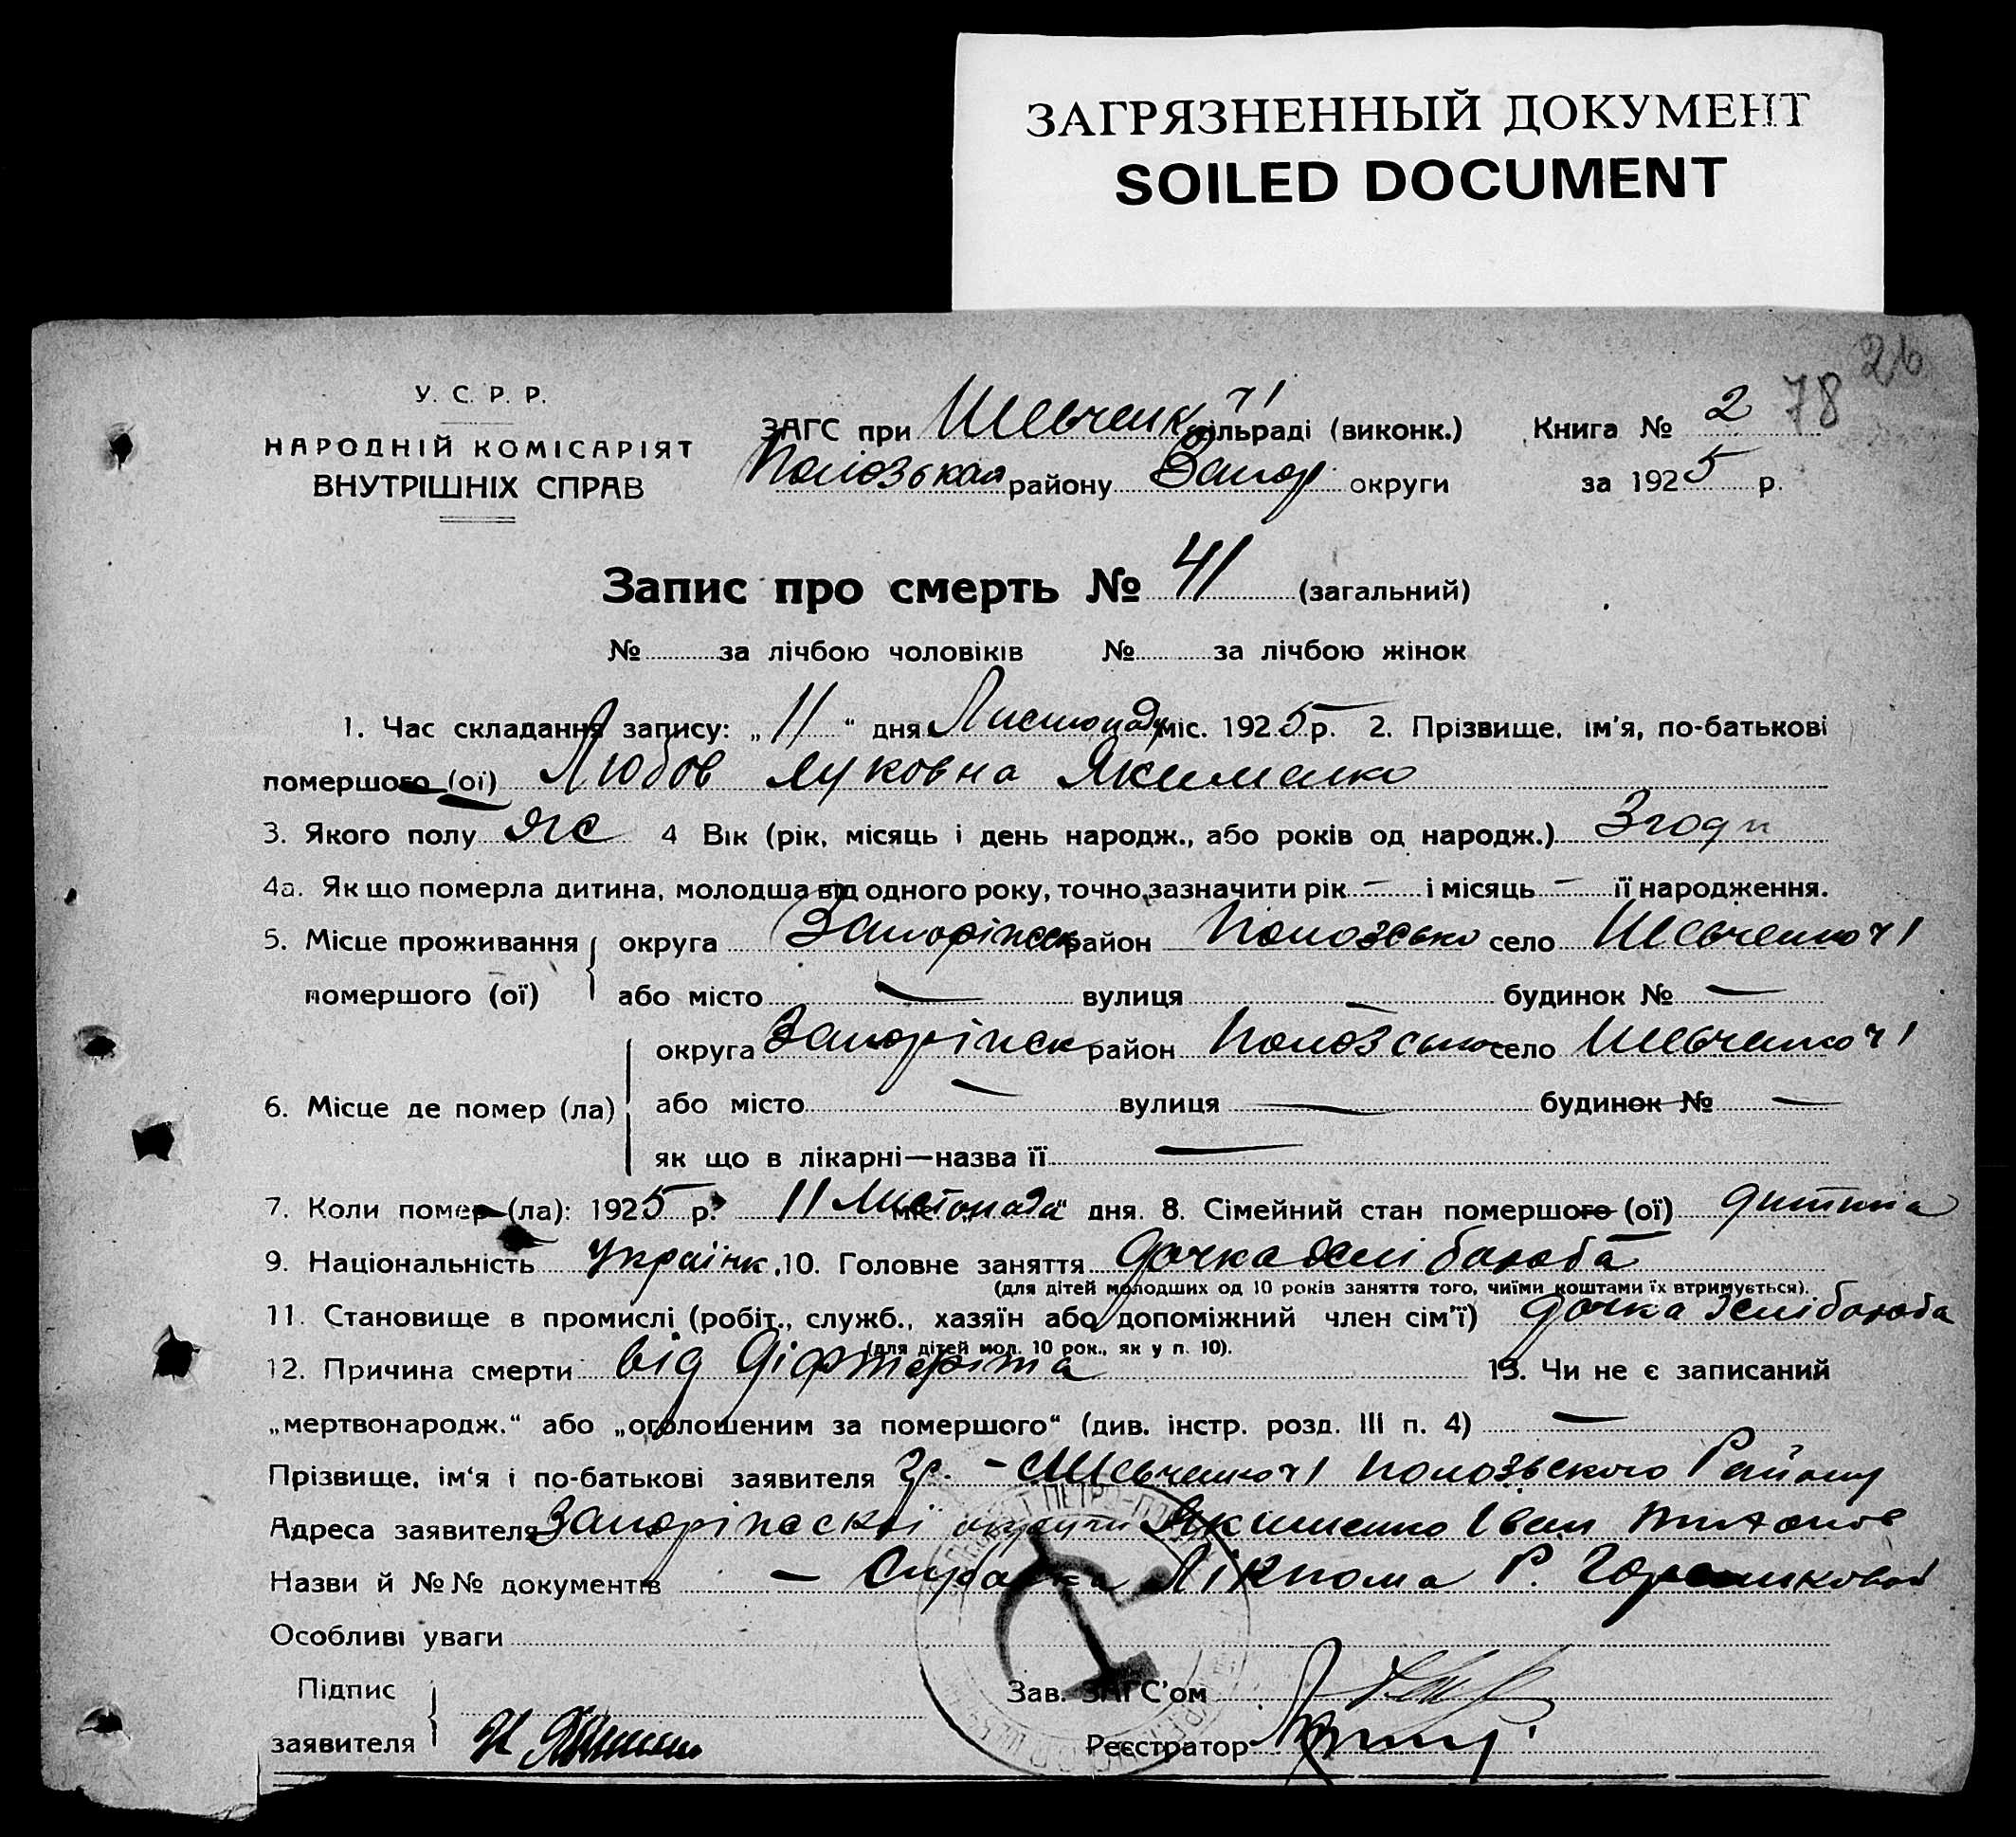 ЗАГРЯЗНЕННЫЙ ДОКУМЕНТ
SOILED DOCUMENT
26
78
У. С. Р. Р.
НАРОДНІЙ КОМІСАРІЯТ
ВНУТРІШНІХ СПРАВ
ЗАГС при Шевченк ч1 сільраді (виконк.) Книга № 2
району Запор округи за 1925 р.
Запис про смерть № 41 (загальний)
№ за лічбою чоловіків № за лічбою жінок
1. Час складання запису: „11“ дня Листопада міс. 1925 р. 2. Прізвище, ім'я, по-батькові
помершого (ої) Любов Луковна Якименко
3. Якого полу жс 4 Вік (рік, місяць і день народж., або років од народж.) 3 годи
4а. Як що померла дитина, молодша від одного року, точно зазначити рік – і місяць – її народження.
5. Місце проживання округа район село Шевченко ч1
помершого (ої) або місто — вулиця — будинок № —
округа район село Шевченко ч1
6. Місце де помер (ла) або місто — вулиця — будинок № —
як що в лікарні—назва її —
7. Коли помер (ла): 1925 р. 11 Листопада міс. „ “ дня. 8. Сімейний стан помершого (ої) дитина
9. Національність Україінк. 10. Головне заняття дочка хлібороба
(для дітей молодших од 10 років заняття того, чиїми коштами їх втримується).
11. Становище в промислі (робіт., служб., хазяїн або допоміжний член сім'ї) дочка хлібороба
(для дітей мол. 10 рок., як у п. 10).
12. Причина смерти від діфтеріта 13. Чи не є записаний
„мертвонародж.“ або „оголошеним за помершого“ (див. інстр. розд. III п. 4) —
Прізвище, ім'я і по-батькові заявителя гр. – с Шевченко ч1 Пологського Району
Адреса заявителя округи Якименко Іван
Назви й №№ документів – Справка Лікпома Р.
Особливі уваги
Підпис Зав. ЗАГС'ом
заявителя Реєстратор